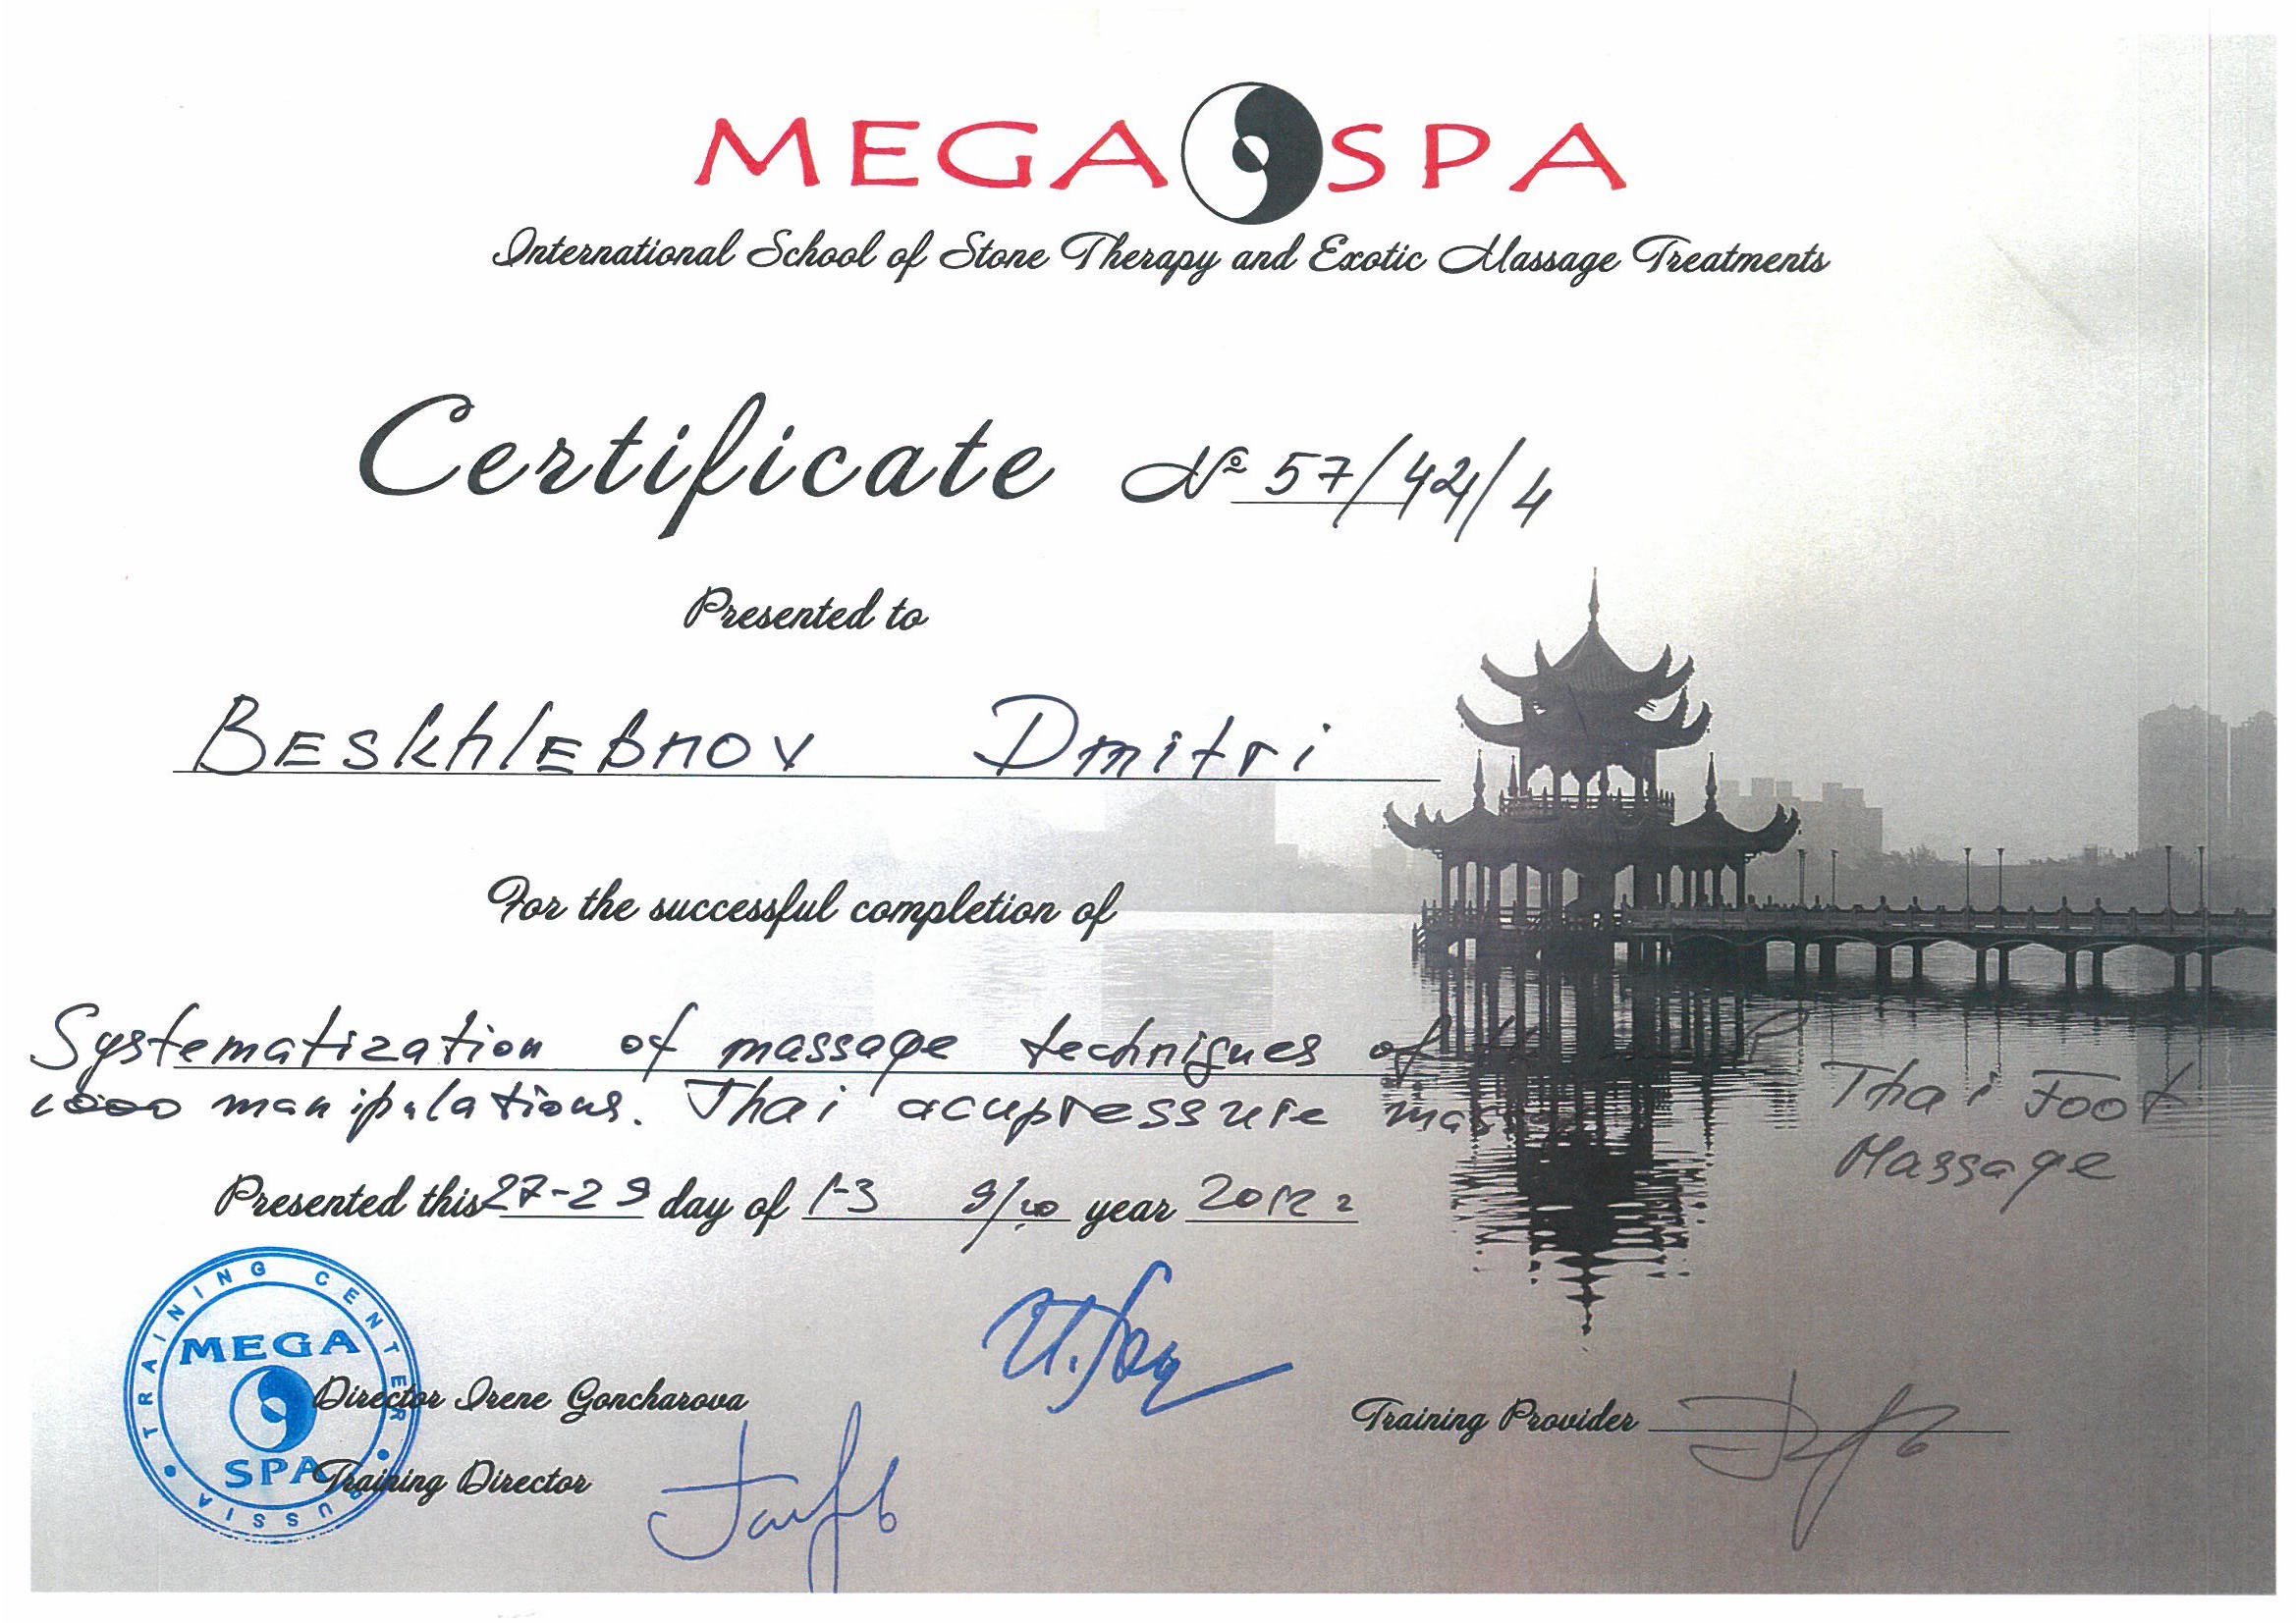 MEGA SPA
International School of Stone Therapy and Exotic Massage Treatments
Certificate № 57/42/4
Presented to
BESKhlEBNOV Dmitri
For the successful completion of
Systematization of massage techniques of
1000 manipulations. Thai acupressure Thai Foot
Massage
Presented this 27-29 day of 1-3 9/10 year 2012
TRAINING CENTER
MEGA
SPA
RUSSIA
Director Irene Goncharova
Training Provider
Training Director